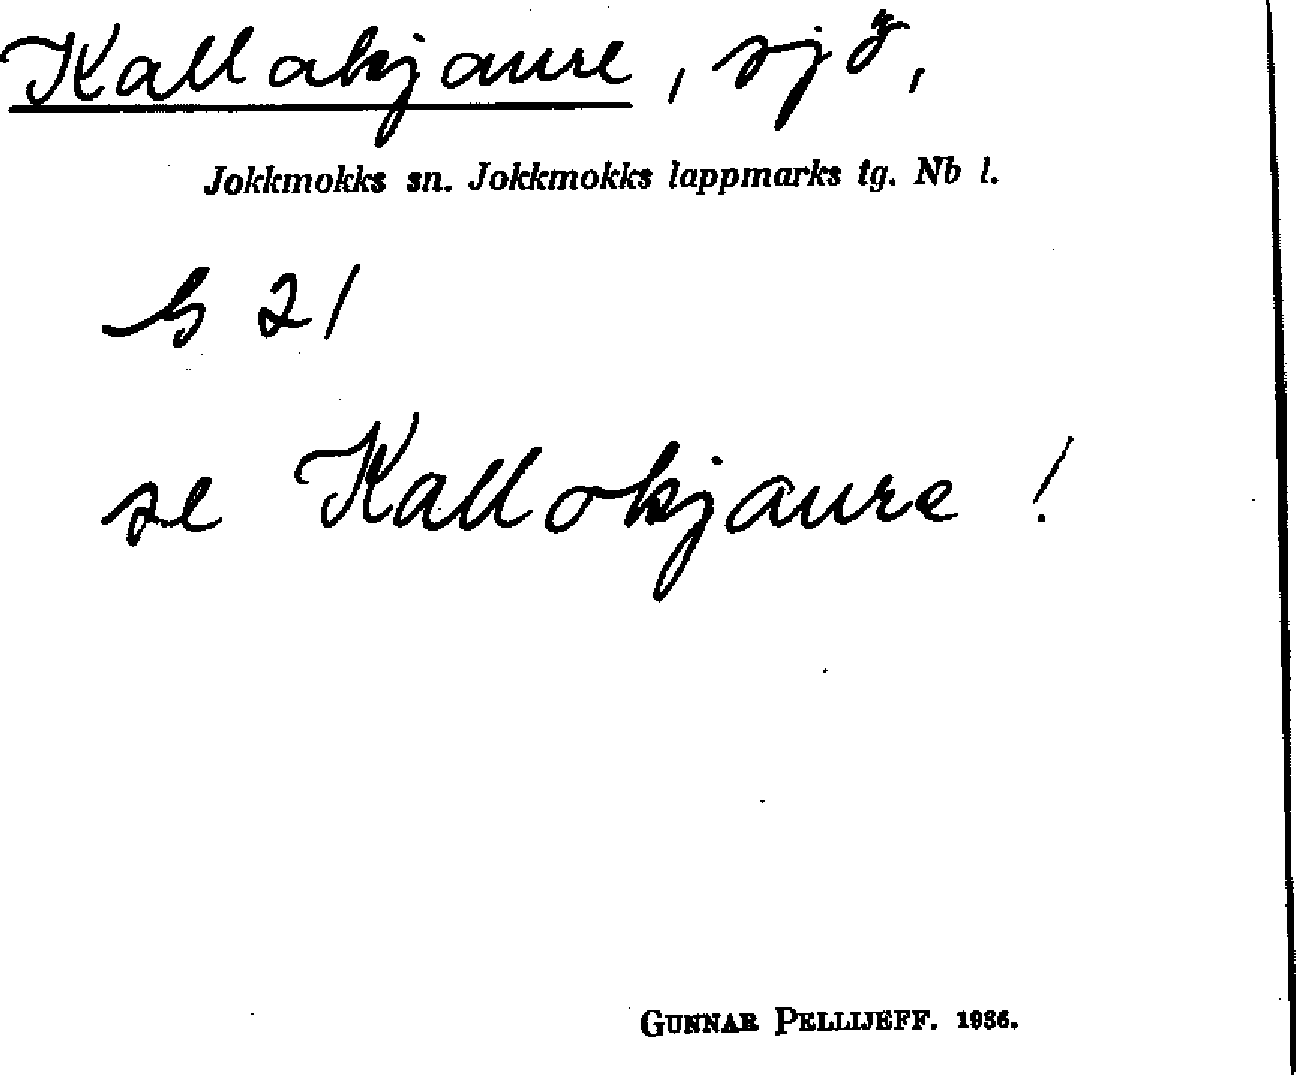 Kallakjaure, sjö,
Jokkmokks sn. Jokkmokks lappmarks tg. Nb l.
G 21
se Kallokjaure !
GUNNAR PELLIJEFF. 1936.